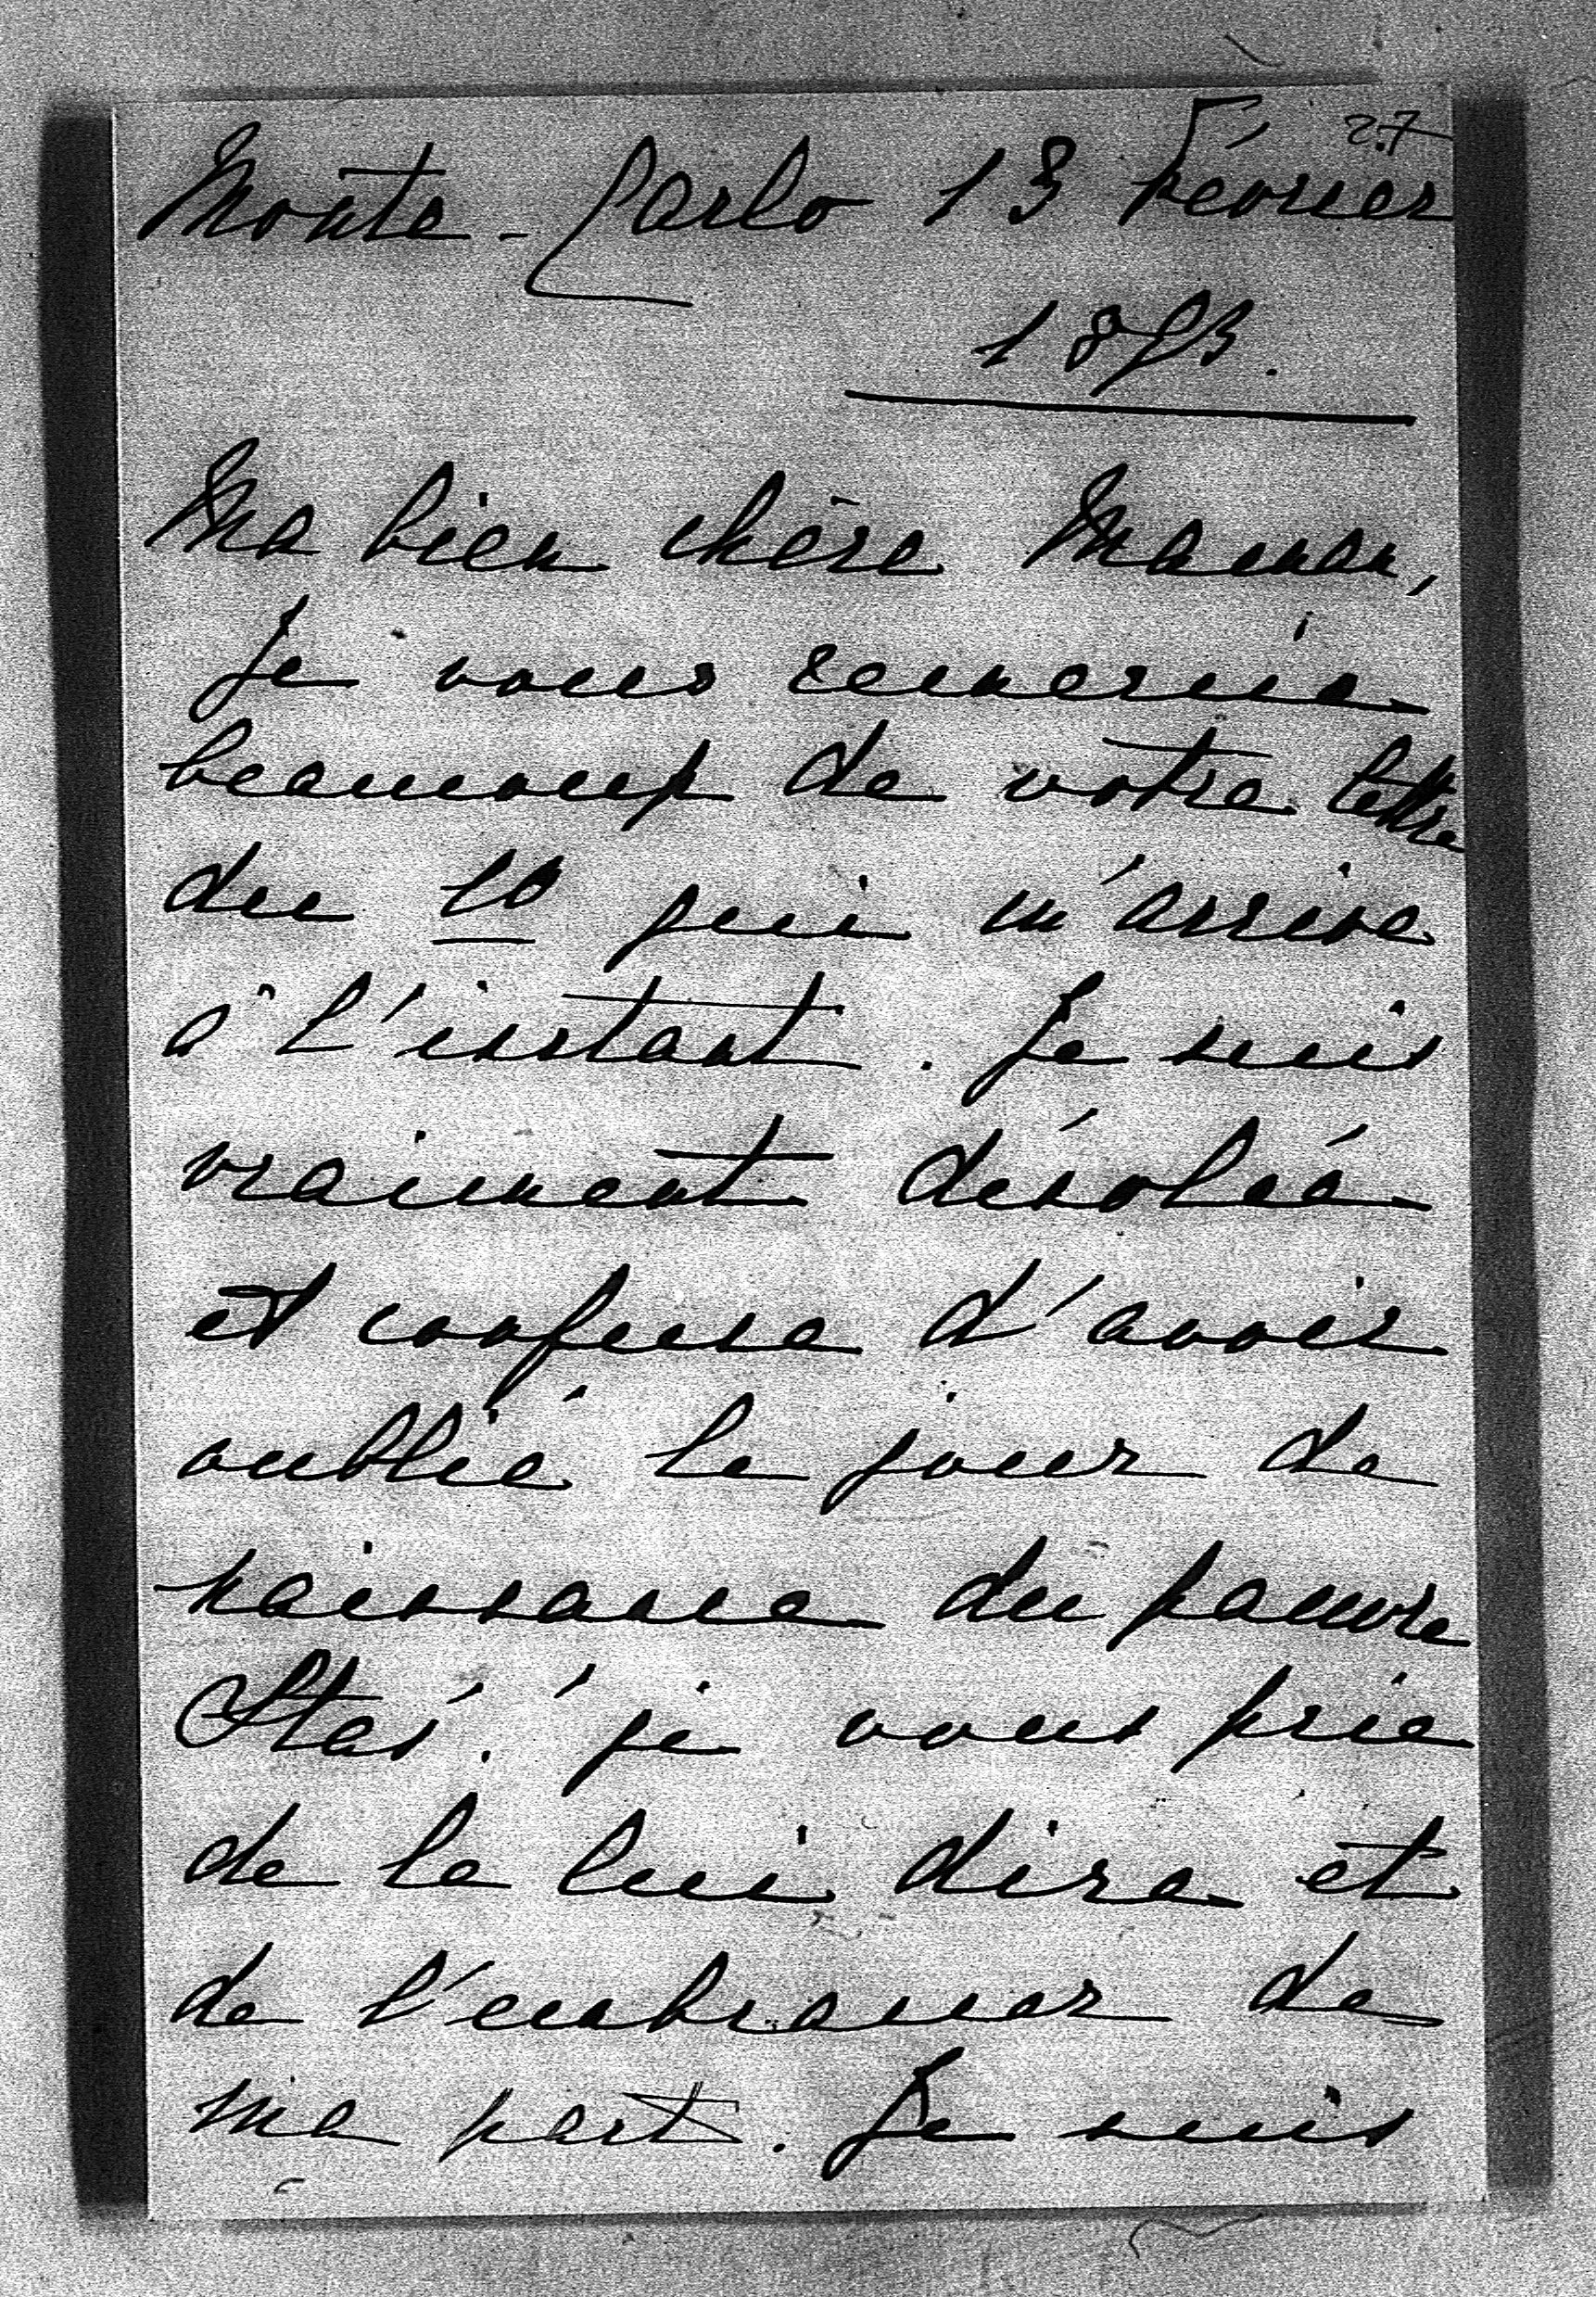 27
Monte-Carlo 13 Février
1893.
Ma bien chère Maman,
Je vous remercie
beaucoup de votre lettre
du 10 qui m'arrive
à l'instant. Je suis
vraiment désolée
et confuse d'avoir
oublié le jour de
naissance du pauvre
Stas! je vous prie
de le lui dire et
de l'embrasser de
ma part. Je suis